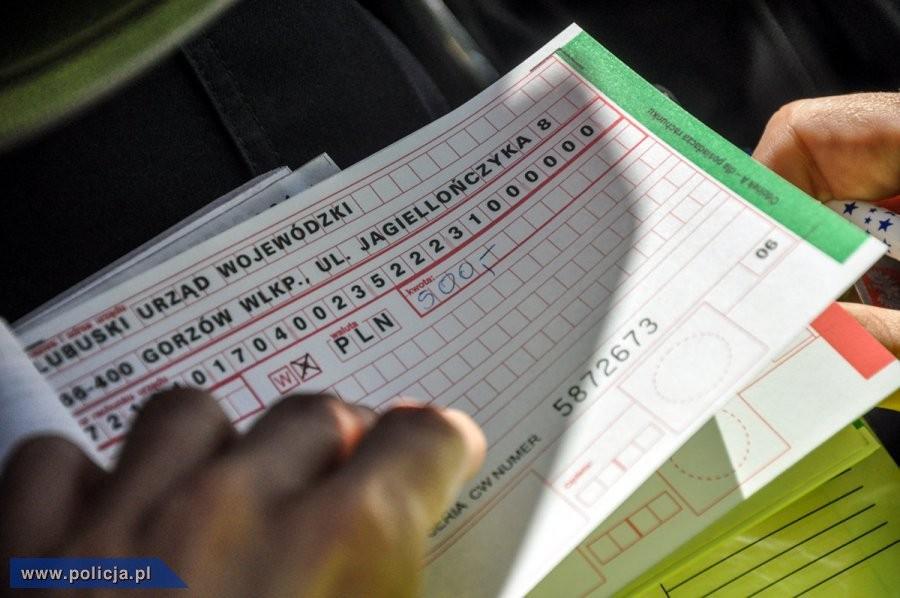 Odcinek A - dla posiadacza rachunku
LUBUSKI URZĄD WOJEWÓDZKI
66-400 GORZÓW WLKP., UL. JAGIELLOŃCZYKA 8
01704002352223 1000000
W X
waluta
PLN
kwota:
500,-
06
SERIA CW NUMER 5872673
www.policja.pl